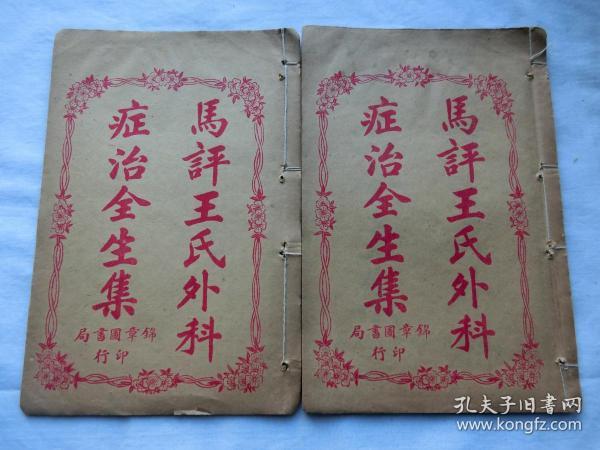 馬評王氏外科
症治全生集
錦章圖書局
印行
馬評王氏外科
症治全生集
錦章圖書局
印行
孔夫子旧书网
www.kongfz.com